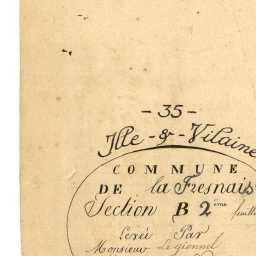 - 35 -
Ille - & - Vilaine
COMMUNE
DE la Fresnais
Section B 2ème feuille
Levée Par
Monsieur